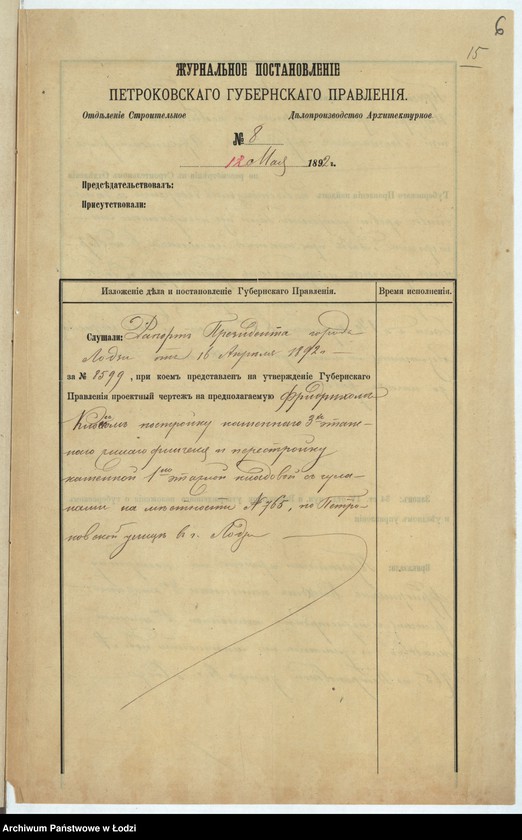 6
15
ЖУРНАЛЬНОЕ ПОСТАНОВЛЕНІЕ
ПЕТРОКОВСКАГО ГУБЕРНСКАГО ПРАВЛЕНІЯ.
Отдѣленіе Строительное Дѣлопроизводство Архитектурное
№ 8
12 Мая 1892 г.
Предсѣдательствовалъ:
Присутствовали:
Изложеніе дѣла и постановленіе Губернскаго Правленія. Время исполненія.
Слушали: Рапортъ Президента города
Лодзи отъ 16 Апрѣля 1892 —
за № 8599, при коемъ представленъ на утвержденіе Губернскаго
Правленія проектный чертежъ на предполагаемую Фридрихомъ
постройку каменнаго 3хъ этаж-
наго флигеля и перестройку
каменной 1но этажной кладовой
на мѣстности № 765, по Петро-
ковской улицѣ въ г. Лодзи
Archiwum Państwowe w Łodzi